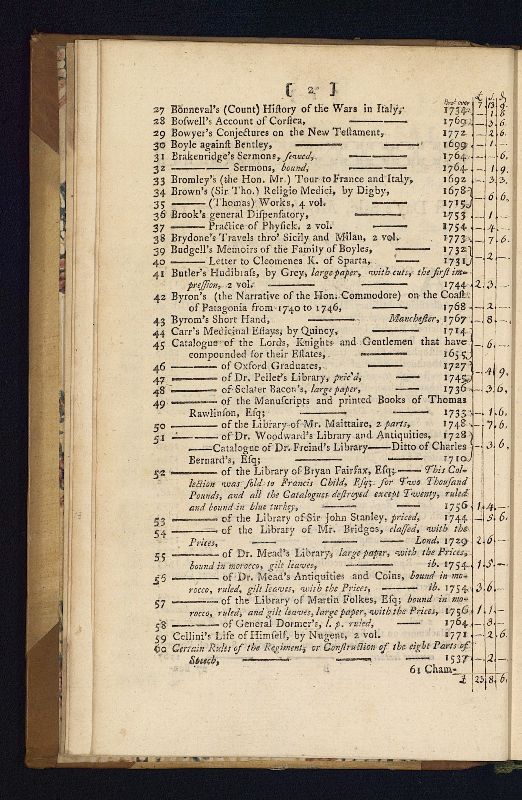 [ 2 ]
£ s d
Bro.t over 7.13.9.
27 Bonneval's (Count) History of the Wars in Italy, 1734 — 1.8
28 Boswell's Account of Corsica, 1769 — 3.6.
29 Bowyer's Conjectures on the New Testament, 1772 — 2.6
30 Boyle against Bentley, 1699 — 1.
31 Brakenridge's Sermons, sewed, 1764 — 6.
32 —— Sermons, bound, 1764 — 1.9.
33 Bromley's (the Hon. Mr.) Tour to France and Italy, 1692 — 3.3.
34 Brown's (Sir Tho.) Religio Medici, by Digby, 1678
35 —— (Thomas) Works, 4 vol. 1715 — 6.6.
36 Brook's general Dispensatory, 1753 — 1.
37 —— Practice of Physick. 2 vol. 1754 — 4.
38 Brydone's Travels thro' Sicily and Milan, 2 vol. 1773 — 7.6.
39 Budgell's Memoirs of the Family of Boyles, 1732
40 —— Letter to Cleomenes K. of Sparta, 1731 — 2.
41 Butler's Hudibrass, by Grey, large paper, with cuts, the first im-
pression, 2 vol. 1744 2.3.
42 Byron's (the Narrative of the Hon. Commodore) on the Coast
of Patagonia from 1740 to 1746, 1768 — 2.
43 Byrom's Short Hand, Manchester, 1767 — 8.
44 Carr's Medicinal Essays, by Quincy, 1714
45 Catalogue of the Lords, Knights and Gentlemen that have — 6.
compounded for their Estates, 1655
46 —— of Oxford Graduates, 1727
47 —— of Dr. Pellet's Library, pric'd, 1745 — 4.9.
48 —— of Sclater Bacon's, large paper, 1736 — 3.6.
49 —— of the Manuscripts and printed Books of Thomas
Rawlinson, Esq; 1733 — 1.6.
50 —— of the Library of Mr. Maittaire, 2 parts, 1748 — 7.6.
51 —— of Dr. Woodward's Library and Antiquities, 1728
——Catalogue of Dr. Freind's Library——Ditto of Charles — 3.6.
Bernard's, Esq; 1710
52 —— of the Library of Bryan Fairfax, Esq; —— This Col-
lection was sold to Francis Child, Esq; for Two Thousand
Pounds, and all the Catalogues destroyed except Twenty, ruled
and bound in blue turkey, 1756 1.4.
53 —— of the Library of Sir John Stanley, priced, 1744 — 5.6.
54 —— of the Library of Mr. Bridges, classed, with the
Prices, Lond. 1729 2.6
55 —— of Dr. Mead's Library, large paper, with the Prices,
bound in morocco, gilt leaves, ib. 1754 1.5
56 —— of Dr. Mead's Antiquities and Coins, bound in mo-
rocco, ruled, gilt leaves, with the Prices, ib. 1754 3.6.
57 —— of the Library of Martin Folkes, Esq; bound in mo-
rocco, ruled, and gilt leaves, large paper, with the Prices, 1756 1.1.
58 —— of General Dormer's, l. p. ruled, 1764 — 8.
59 Cellini's Life of Himself, by Nugent, 2 vol. 1771 — 2.6.
60 Certain Rules of the Regiment, or Construction of the eight Parts of
Speech, 1537 — 2.
61 Cham-
£ 23.8.6.